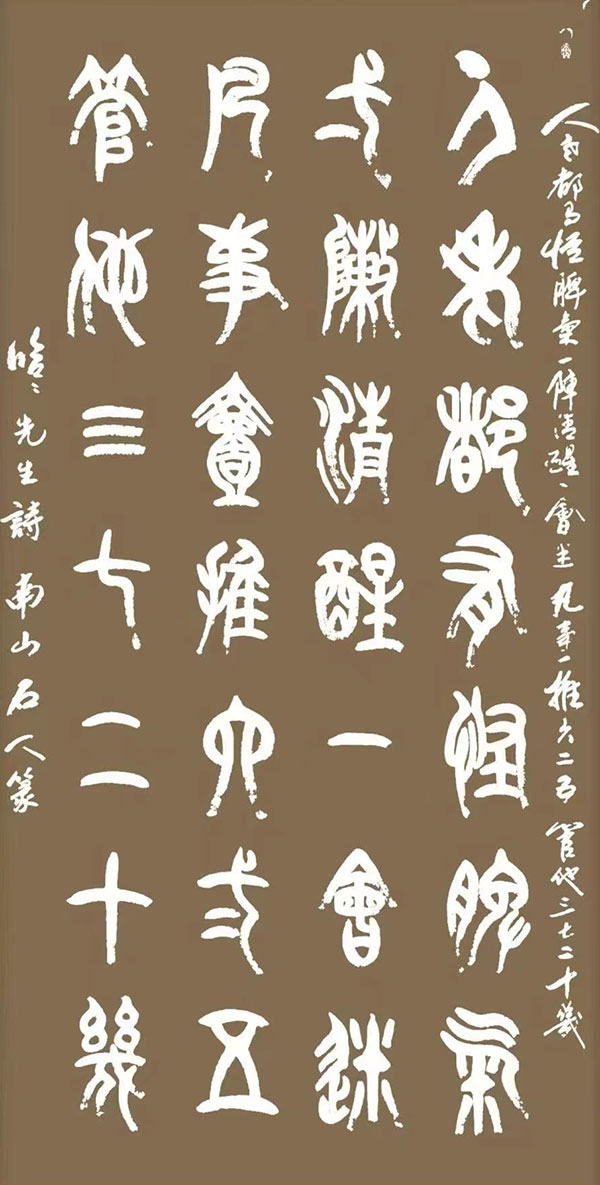 人老都有怪脾氣一陣清醒一會迷凡事一推六二五管他三七二十幾
人老都有怪脾氣
弌陣清醒一會迷
凡事壹推六弍五
管他三七二十幾
先生詩 南山石人篆